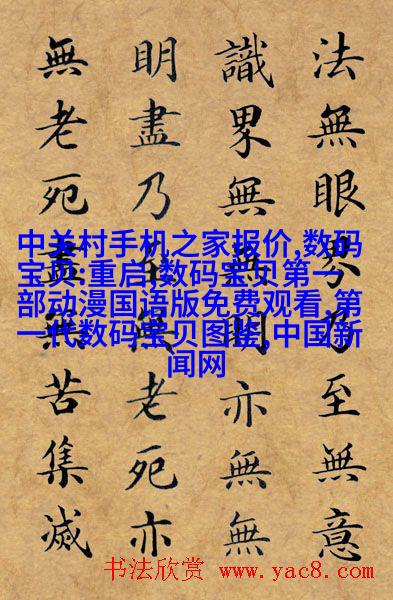 法無眼界乃至無意
識界無無明亦無無
明盡乃至無老死亦
無老死盡無苦集滅
中关村手机之家报价,数码
宝贝:重启,数码宝贝第一
部动漫国语版免费观看,第
一代数码宝贝图鉴,中国新
闻网
书法欣赏 www.yac8.com